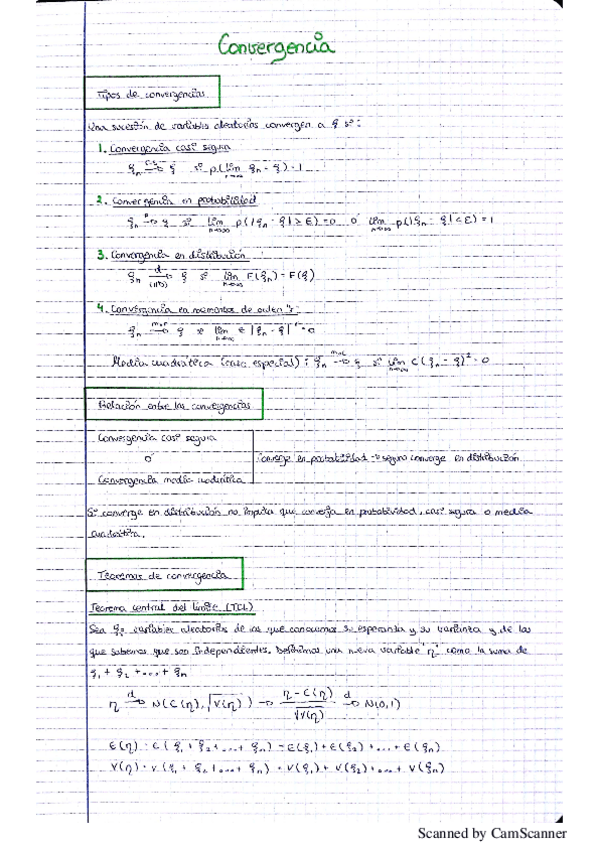 Convergencia
Tipos de convergencias
Una sucesión de variables aleatorias convergen a ξ si:
1. Convergencia casi segura
ξn → ξ si p(lim ξn = ξ) = 1
2. Convergencia en probabilidad
ξn →p ξ si lim n→∞ p(|ξn - ξ| ≥ ε) = 0 o lim n→∞ p(|ξn - ξ| < ε) = 1
3. Convergencia en distribución
ξn →d ξ si lim n→∞ F(ξn) = F(ξ)
4. Convergencia en momentos de orden "r"
ξn → ξ si lim n→∞ E|ξn - ξ|^r = 0
Media cuadrática (caso especial): ξn → ξ si lim n→∞ E(ξn - ξ)² = 0
Relación entre las convergencias
Convergencia casi segura
ó converge en probabilidad → seguro converge en distribución
Convergencia media cuadrática
Si converge en distribución no implica que converja en probabilidad, casi segura o media
cuadrática.
Teoremas de convergencia
Teorema central del límite (TCL)
Sea ξn variables aleatorias de las que conocemos su esperanza y su varianza y de las
que sabemos que son independientes. Definimos una nueva variable "η" como la suma de
ξ1 + ξ2 + ... + ξn
η →d N(E(η), √V(η)) → (η - E(η))/√V(η) →d N(0,1)
E(η) = E(ξ1 + ξ2 + ... + ξn) = E(ξ1) + E(ξ2) + ... + E(ξn)
V(η) = V(ξ1 + ξ2 + ... + ξn) = V(ξ1) + V(ξ2) + ... + V(ξn)
Scanned by CamScanner